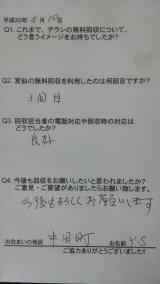 平成30年 3月10日
Q1. これまで、チラシの無料回収について、
どう言うイメージをお持ちでしたか?
Q2. 宮仙の無料回収を利用したのは何回目ですか?
3回目
Q3. 回収担当者の電話対応や回収時の対応は
どうでしたか?
良好
Q4. 今後も回収をお願いしたいと思われましたか?
ご意見・ご要望がありましたらお願い致します。
今後もよろしくお願いします
お住まいの地区 中田町 お名前 Y.S
ご協力ありがとうございました!!